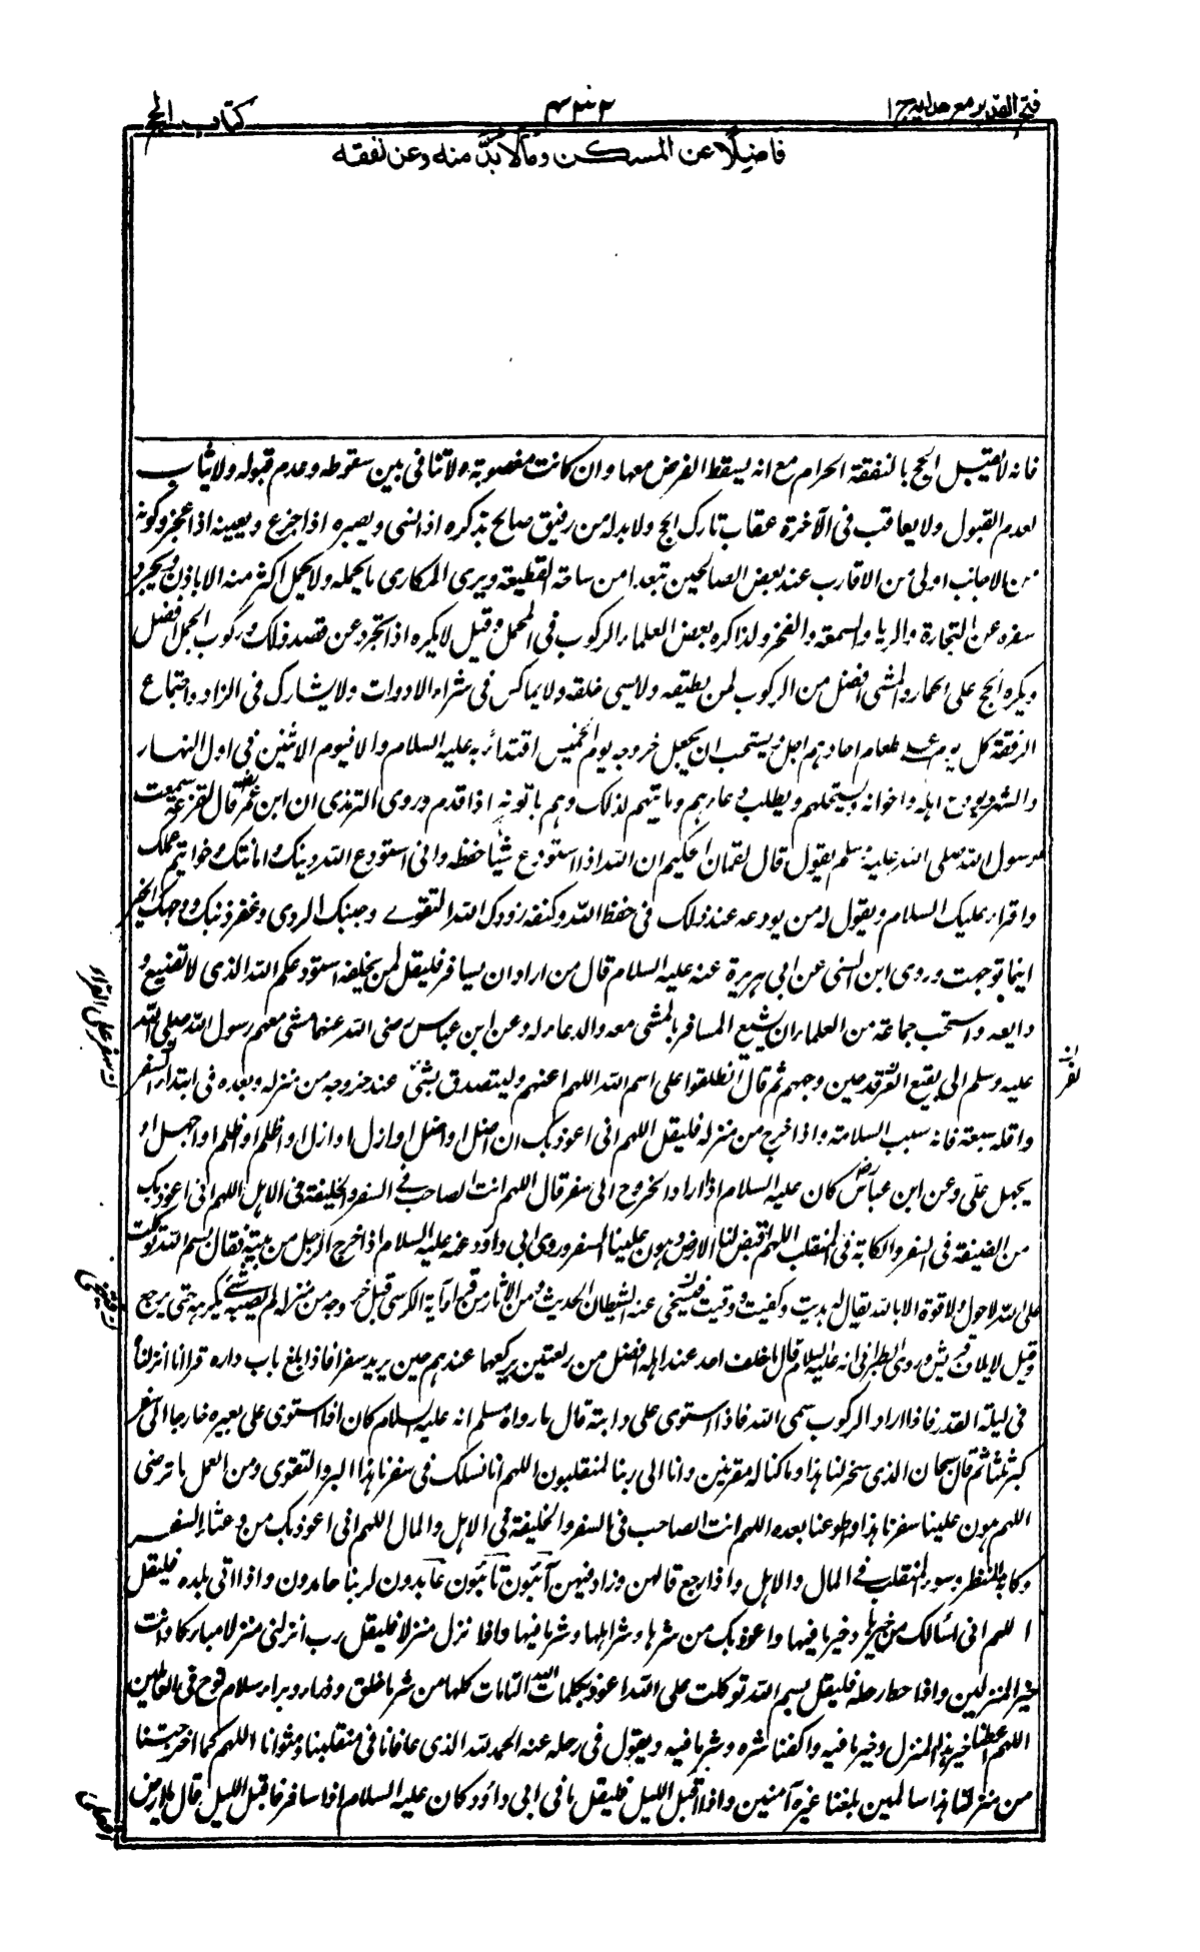 فتح القدير مع هدايه ج ا
كتاب الحج
فاضلًا عن المسكن ومالا بُدَّ منه وعن نفقه
فانه لا يقبل الحج بالنفقة الحرام مع انه يسقط الفرض معها وان كانت مغصوبة ولا تنافى بين سقوطه وعدم قبوله ولا يثاب
لعدم القبول ولا يعاقب فى الآخرة عقاب تارك الحج ولا بد له من رفيق صالح يذكره اذا نسى ويصبره اذا جزع ويعينه اذا عجز وكونه
من الاجانب اولى من الاقارب عند بعض الصالحين تبعدا من ساحة القطيعة ويرى المكارى ما يحمله ولا يحمل اكثر منه الا باذنه ويجرد
سفره عن التجارة والريا والسمعة والفخر ولذا كره بعض العلماء الركوب فى المحمل وقيل لا يكره اذا تجرد عن قصد ذلك وركوب الجمل افضل
ويكره الحج على الحمار والمشى افضل من الركوب لمن يطيقه ولا يسى خلقه ولا يماكس فى شراء الادوات ولا يشارك فى الزاد واجتماع
الرفقة كل يوم على طعام احدهم احل ويستحب ان يجعل خروجه يوم الخميس اقتداء به عليه السلام والا فيوم الاثنين فى اول النهار
والشهر ويودع اهله واخوانه ويستحلهم ويطلب دعاءهم وياتيهم لذلك وهم ياتونه اذا قدم وروى الترمذى ان ابن عمر قال لقزعة سمعت
رسول الله صلى الله عليه وسلم يقول قال لقمان الحكيم ان الله اذا استودع شيئا حفظه وانى استودع الله دينك وامانتك وخواتيم عملك
واقراء عليك السلام ويقول له من يودعه عند ذلك فى حفظ الله وكنفه زودك الله التقوى وجنبك الردى وغفر ذنبك ووجهك الخير
اينما توجهت وروى ابن السنى عن ابى هريرة عنه عليه السلام قال من اراد ان يسافر فليقل لمن يخلفه استودعكم الله الذى لا تضيع و
دايعه واستحب جماعة من العلماء ان يشيع المسافر بالمشى معه والدعاء له وعن ابن عباس رضى الله عنهما مشى معهم رسول الله صلى الله
عليه وسلم الى بقيع الغرقد حين وجههم ثم قال انطلقوا على اسم الله اللهم اعنهم وليتصدق بشئ عند خروجه من منزله وبعده فى ابتداء السفر
واقله سبعة فانه سبب السلامة واذا خرج من منزله فليقل اللهم انى اعوذ بك ان اضل او اضل او ازل او ازل او اظلم او اظلم او اجهل او
يجهل على وعن ابن عباس كان عليه السلام اذا اراد الخروج الى سفر قال اللهم انت الصاحب فى السفر والخليفة فى الاهل اللهم انى اعوذ بك
من الضيعة فى السفر والكآبة فى المنقلب اللهم اقبض لنا الارض وهون علينا السفر وروى ابى داود عنه عليه السلام اذا خرج الرجل من بيته فقال بسم الله توكلت
على الله لا حول ولا قوة الا بالله يقال له هديت وكفيت ووقيت فيتنحى عنه الشيطان الحديث ومن الاثار من قرا آية الكرسى قبل خروجه من منزله لم يصيبه شئ يكرهه حتى يرجع
وقيل لايلاف قريش وروى الطبرانى انه عليه السلام قال ما خلف احد عند اهله افضل من ركعتين يركعهما عندهم حين يريد سفرا فاذا بلغ باب داره قرا انا انزلناه
فى ليلة القدر فاذا اراد الركوب سمى الله فاذا استوى على دابته قال ما رواه مسلم انه عليه السلام كان اذا استوى على بعيره خارجا الى سفر
كبر ثلثا ثم قال سبحان الذى سخر لنا هذا وما كنا له مقرنين وانا الى ربنا لمنقلبون اللهم انا نسئلك فى سفرنا هذا البر والتقوى ومن العمل ما ترضى
اللهم هون علينا سفرنا هذا واطو عنا بعده اللهم انت الصاحب فى السفر والخليفة فى الاهل والمال اللهم انى اعوذ بك من وعثاء السفر
وكابة المنظر وسوء المنقلب فى المال والاهل واذا رجع قالهن وزاد فيهن آئبون تائبون عابدون لربنا حامدون واذا اتى بلده فليقل
اللهم انى اسألك من خيرها وخير ما فيها واعوذ بك من شرها وشر اهلها وشر ما فيها واذا نزل منزلا فليقل رب انزلنى منزلا مباركا وانت
خير المنزلين واذا حط رحله فليقل بسم الله توكلت على الله اعوذ بكلمات الله التامات كلها من شر ما خلق وذرا وبرا سلام على نوح فى العالمين
اللهم اعطنا خير هذا المنزل وخير ما فيه واكفنا شره وشر ما فيه ويقول فى رحله عنه الحمد لله الذى عافانا فى منقلبنا ومثوانا اللهم كما اخرجتنا
من منزلنا هذا سالمين بلغنا غيره آمنين واذا اقبل الليل فليقل ما فى ابى داؤد كان عليه السلام اذا سافر فاقبل الليل قال يا ارض